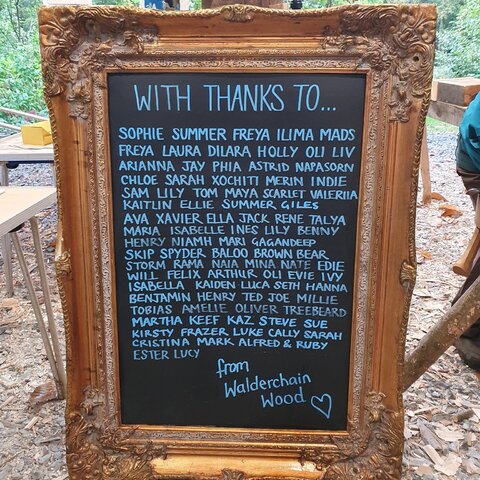 WITH THANKS TO...
SOPHIE SUMMER FREYA ILIMA MADS
FREYA LAURA DILARA HOLLY OLI LIV
ARIANNA JAY PHIA ASTRID NAPASORN
CHLOE SARAH XOCHITI MERIN INDIE
SAM LILY TOM MAYA SCARLET VALERIIA
KAITLIN ELLIE SUMMER GILES
AVA XAVIER ELLA JACK RENE TALYA
MARIA ISABELLE INES LILY BENNY
HENRY NIAMH MARI GAGANDEEP
SKIP SPYDER BALOO BROWN BEAR
STORM RAMA NAIA MINA NATE EDIE
WILL FELIX ARTHUR OLI EVIE IVY
ISABELLA KAIDEN LUCA SETH HANNA
BENJAMIN HENRY TED JOE MILLIE
TOBIAS AMELIE OLIVER TREEBEARD
MARTHA KEEF KAZ STEVE SUE
KIRSTY FRAZER LUKE CALLY SARAH
CRISTINA MARK ALFRED & RUBY
ESTER LUCY
from
Walderchain
Wood